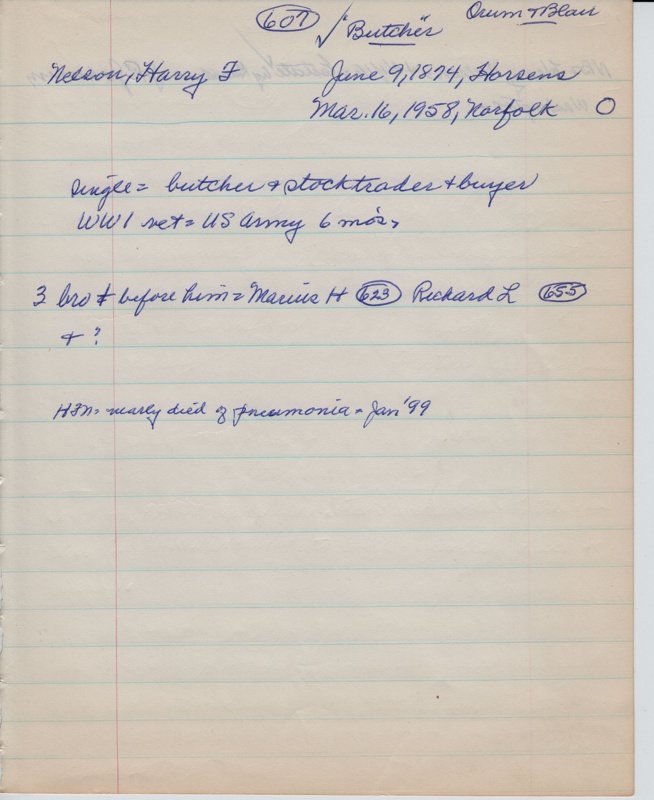 607 ✓ "Butcher" Orum & Blair
Nelson, Harry F June 9, 1874, Horsens
Mar. 16, 1958, Norfolk O
single = butcher & stocktrader & buyer
WW1 vet = US Army 6 mos.
3 bro ‡ before him = Marius H 623 Richard L 655
& ?
HFN = nearly died of pneumonia = Jan '99